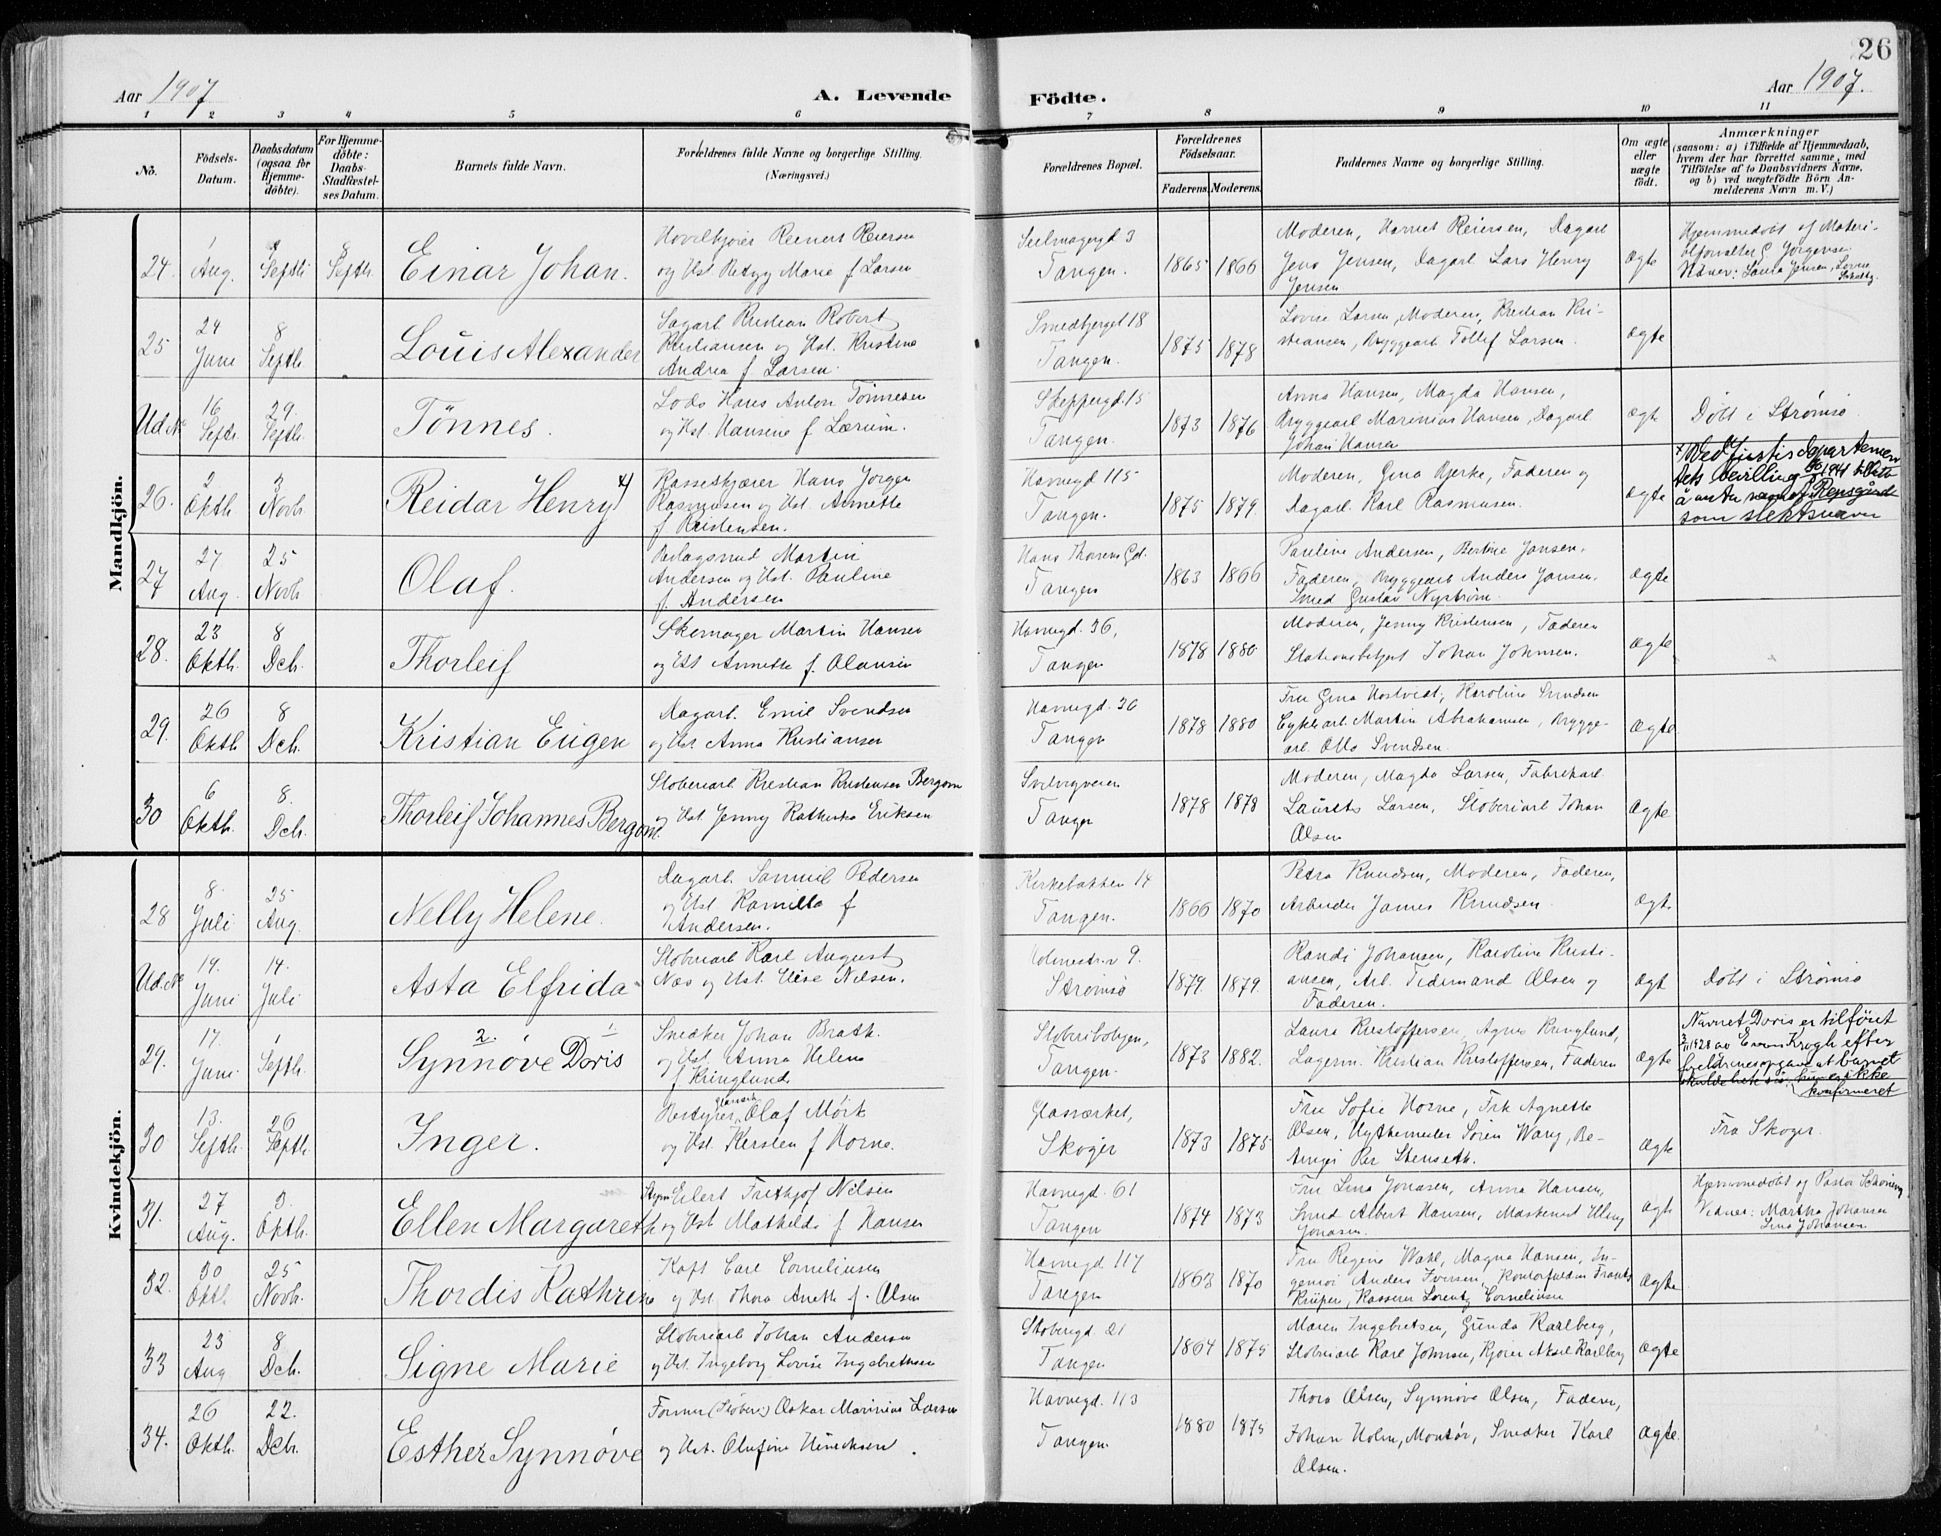 26
Aar 1907
A. Levende
Födte.
Aar 1907.
1 2 3 4 5 6 7 8 9 10 11
No.
Födsels-
Datum.
Daabsdatum
(ogsaa for
Hjemme-
döbte).
For Hjemme-
döbte:
Daabs-
Stadfæstel-
ses Datum.
Barnets fulde Navn.
Forældrenes fulde Navne og borgerlige Stilling.
(Næringsvei.)
Forældrenes Bopæl.
Forældrenes
Födselsaar.
Faderens.
Moderens.
Faddernes Navne og borgerlige Stilling.
Om ægte
eller
nægte
födt.
Anmærkninger
(saasom: a) i Tilfælde af Hjemmedaab,
hvem der har forrettet samme, med
Tilföielse af to Daabsvidners Navne,
og b) ved nægtefödte Börn An-
melderens Navn m. V.)
Mandkjön.
24. 1 Aug. 8 Septb 8 Septb. Einar Johan.
Reinert Reiersen
og Hst. Marie f Larsen
Seilmagergd 3
Tangen.
1865 1866
Moderen, Harriet Reiersen, Dagarb
Jens Jensen, Dagarb Lars Henry
Jensen
ægte
Hjemmedöbt af Materi-
alforvalter Jörgensen
Vidner: Laura Jensen, Lovise
25 24 Juni 8 Septb Louis Alexander
Dagarb Kristian Robert
Kristiansen og Hst. Kristine
Andrea f Larsen.
Smedbjerget 18
Tangen.
1875 1878
Lovise Larsen, Moderen, Kristian Kri-
stiansen, Bryggearb Tollef Larsen.
ægte
Ud.No 16 Septr. 29. Septb. Tönnes.
Lods Hans Anton Tönnesen
og Hst. Hansine f Lærum.
Skeppergd. 15
Tangen.
1873 1876
Anna Hansen, Magda Hansen,
Bryggearb Marinius Hansen, Dagarb
Johan Hansen
ægte
Döbt i Strömsö.
26. 2 Oktb 3 Novb. Reidar Henry x)
Hans Jörgen
Rasmussen og Hst. Annette
f Kristensen.
Havnegd 115
Tangen.
1875 1879
Moderen, Gina Bjerke, Faderen og
Dagarb. Karl Rasmussen.
ægte
x) Ved Justisdepartemen
tets bevilling 1941 tillatt
å anta navnet Rensgård
som slektsnavn
27 27 Aug. 25 Novb Olaf.
Martin
Andersen og Hst. Pauline
f. Andersen
Hans Gd.
Tangen
1863 1866
Pauline Andersen, Bertine Jansen.
Faderen, Bryggearb Anders Jansen.
Smed Gustav Nyström.
ægte
28. 23 Oktb. 8 Dcb. Thorleif
Skomager Martin Hansen
og Hst Annette f. Olausen
Havnegd. 36,
Tangen
1878 1880
Moderen, Jenny Kristensen, Faderen
Stationsbetjent Johan Johnsen.
ægte
29. 26 Oktb 8 Dcb. Kristian Eugen
Dagarb. Emil Svendsen
og Hst Anna Kristiansen
Havnegd. 30
Tangen
1878 1880
Fru Gina Hostvedt, Karoline Svendsen
Martin Abrahamsen, Brygge-
arb. Otto Svendsen.
ægte
30 6 Oktb. 8. Dcb. Thorleif Johannes Bergom.
Stöberiarb Kristian Kristensen Bergom
og Hst Jenny Katherka Eriksen
Svelvigveien
Tangen
1878 1878
Moderen, Magda Larsen, Fabrikarb.
Laurits Larsen, Stöberiarb Johan
Olsen
ægte
Kvindekjön.
28 8. Juli 25 Aug. Nelly Helene.
Dagarb. Samuel Pedersen
og Hst. Kamilla f
Andersen.
Kirkebakken 14
Tangen.
1866 1870
Petra Knudsen, Moderen, Faderen,
Arbeider James Knudsen.
ægte
Ud.No 19. Juni 14. Juli Asta Elfrida
Stöberiarb Karl August
Næs og Hst. Elise Nilsen.
Holmestr.v 9.
Strömsö
1879 1879
Randi Johansen, Karoline Kristi-
ansen, Arb. Ferdinand Olsen og
Faderen.
ægt
Döbt i Strömsö
29. 17. Juni 1 Septb. 2. Synnöve 1 Doris
Snedker Johan Brath.
og Hst. Anna Helene
f. Kringlund
Stöberibolgen,
Tangen.
1873 1882.
Laura Kristoffersen, Agnes Kringlund,
Lagerm. Kristian Kristoffersen, Faderen
ægte
Navnet Doris er tilföiet
1928 av Krogh efter
foreldrenes opgave at barnet
skulde hete så; hun er ikke
konfirmeret
30 13. Septb. 26 Septb. Inger.
Bestyrer glasverk Olaf Mörk
og Hst. Kirsten f Horne.
Glasværket,
Skoger
1873 1875
Fru Sofie Horne, Frk Agnette
Olsen, Hyttemester Sören Wang, Be-
Per Stenseth.
ægte
Fra Skoger.
31. 27 Aug. 3. Oktb. Ellen Margareth
Styrm Eilert Frithjof Nilsen
og Hst Mathilde f. Hansen
Havnegd. 61
Tangen
1874 1873
Fru Lina Jonasen, Anna Hansen,
Smed Albert Hansen, Maskinest
Jonasen.
ægte
Hjemmedöbt af Pastor Schöning
Vidner: Martha Johansen
Lina Johansen
32. 30 Oktb 25 Novb. Thordis Kathrine
Kapt Carl Corneliusen
og Hst. Thora Anette f. Olsen
Havnegd 117
Tangen
1863 1870
Fru Regine Wahl, Magna Hansen, In-
geniör Anders Iversen, Frants
Krüper, Kasserer Lorentz Corneliusen
ægte
33 23 Aug 8 Dcb. Signe Marie
Stöberiarb Johan Andersen
og Hst. Ingeborg Lovise Ingebretsen
Stöberigd 21
Tangen
1864 1875
Maren Ingebretsen, Gunda Karlberg,
Stöberiarb Karl Johnsen, Kjörer Aksel Karlberg
ægte
34. 26 Oktb. 22. Dcb. Esther Synnöve
Former (Stöberi) Oskar Marinius Larsen
og Hst. Olufine Hinriksen.
Havnegd. 113
Tangen
1880 1875
Thora Olsen, Synnöve Olsen, Faderen,
Johan Holm, Montör, Snedker Karl
Olsen.
ægte